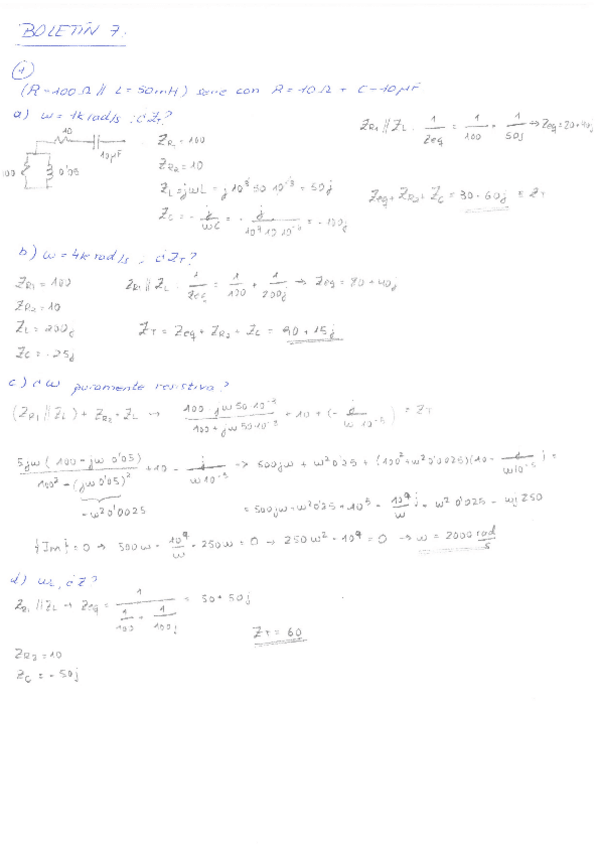 BOLETÍN 7.
1
(R=100Ω // L=50mH) serie con R=10Ω + C=10μF
a) w=1k rad/s ¿ZT?
10
10μF
100
0'05
ZR1 = 100
ZR2 = 10
ZL = jwL = j 10^3 50·10^-3 = 50j
ZC = - j/wC = - j/(10^3 10·10^-6) = -100j
ZR1 // ZL · 1/Zeq = 1/100 + 1/50j ⇒ Zeq = 20+40j
Zeq + ZR2 + ZC = 30-60j = ZT
b) w=4k rad/s ¿ZT?
ZR1 = 100
ZR2 = 10
ZL = 200j
ZC = -25j
ZR1 // ZL · 1/Zeq = 1/100 + 1/200j → Zeq = 80+40j
ZT = Zeq + ZR2 + ZC = 90+15j
c) ¿w puramente resistiva?
(ZR1 // ZL) + ZR2 + ZL → (100·jw50·10^-3)/(100+jw50·10^-3) + 10 + (- j/(w·10^-5)) = ZT
5jw(100-jw 0'05)/(100^2-(jw 0'05)^2) + 10 - j/(w10^-5) → 500jw + w^2 0'25 + (100^2+w^2 0'0025)(10 - j/(w10^-5)) =
-w^2 0'0025
= 500jw + w^2 0'25 + 10^5 - 10^9/w j + w^2 0'025 - wj 250
{Im} = 0 → 500w - 10^9/w - 250w = 0 → 250w^2 - 10^9 = 0 → w = 2000 rad/s
d) ¿Z?
ZR1 // ZL → Zeq = 1/(1/100 + 1/100j) = 50+50j
ZT = 60
ZR2 = 10
ZC = -50j